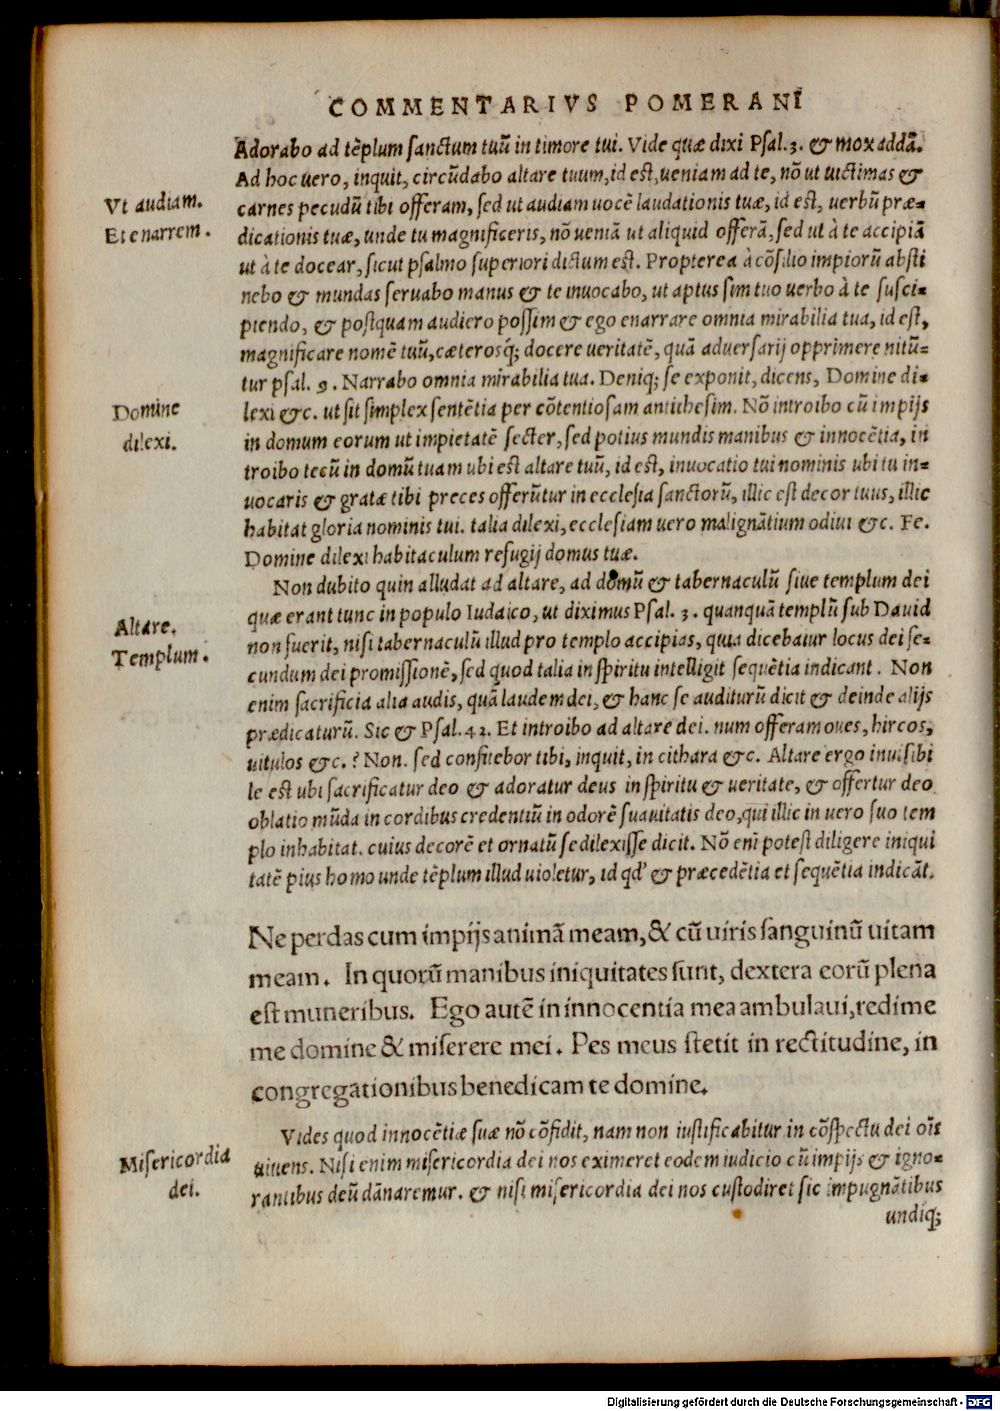 COMMENTARIVS POMERANI
Adorabo ad tẽplum ſanctum tuũ in timore tui. Vide quæ dixi Pſal.3. & mox addã.
Ad hoc uero, inquit, circũdabo altare tuum, id eſt, ueniam ad te, nõ ut uictimas &
Vt audiam.
carnes pecudũ tibi offeram, ſed ut audiam uocẽ laudationis tuæ, id eſt, uerbũ præ-
Et enarrem.
dicationis tuæ, unde tu magnificeris, nõ ueniã ut aliquid offerã, ſed ut à te accipiã
ut à te docear, ſicut pſalmo ſuperiori dictum eſt. Propterea à cõſilio impiorũ abſti
nebo & mundas ſeruabo manus & te inuocabo, ut aptus ſim tuo uerbo à te ſuſci-
piendo, & poſtquam audiero poſſim & ego enarrare omnia mirabilia tua, id eſt,
magnificare nomẽ tuũ, cæterosq; docere ueritatẽ, quã aduerſarij opprimere nitũ-
tur pſal. 9. Narrabo omnia mirabilia tua. Deniq; ſe exponit, dicens, Domine di-
Domine
lexi &c. ut ſit ſimplex ſentẽtia per cõtentioſam antitheſim. Nõ introibo cũ impijs
dilexi.
in domum eorum ut impietatẽ ſecter, ſed potius mundis manibus & innocẽtia, in
troibo tecũ in domũ tuam ubi eſt altare tuũ, id eſt, inuocatio tui nominis ubi tu in-
uocaris & gratæ tibi preces offerũtur in eccleſia ſanctorũ, illic eſt decor tuus, illic
habitat gloria nominis tui. talia dilexi, eccleſiam uero malignãtium odiui &c. Fe.
Domine dilexi habitaculum refugij domus tuæ.
Non dubito quin alludat ad altare, ad domũ & tabernaculũ ſiue templum dei
quæ erant tunc in populo Iudaico, ut diximus Pſal. 3. quanquã templũ ſub Dauid
Altare.
non fuerit, niſi tabernaculũ illud pro templo accipias, quia dicebatur locus dei ſe-
Templum.
cundum dei promiſſionẽ, ſed quod talia in ſpiritu intelligit ſequẽtia indicant. Non
enim ſacrificia alia audis, quã laudem dei, & hanc ſe auditurũ dicit & deinde alijs
prædicaturũ. Sic & Pſal.42. Et introibo ad altare dei. num offeram oues, hircos,
uitulos &c.? Non. ſed confitebor tibi, inquit, in cithara &c. Altare ergo inuiſibi
le eſt ubi ſacrificatur deo & adoratur deus in ſpiritu & ueritate, & offertur deo
oblatio mũda in cordibus credentiũ in odorẽ ſuauitatis deo, qui illic in uero ſuo tem
plo inhabitat. cuius decorẽ et ornatũ ſe dilexiſſe dicit. Nõ eni poteſt diligere iniqui
tatẽ pius homo unde tẽplum illud uioletur, id qd' & præcedẽtia et ſequẽtia indicãt.
Ne perdas cum impijs animã meam, & cũ uiris ſanguinũ uitam
meam. In quorũ manibus iniquitates ſunt, dextera eorũ plena
eſt muneribus. Ego autẽ in innocentia mea ambulaui, redime
me domine & miſerere mei. Pes meus ſtetit in rectitudine, in
congregationibus benedicam te domine.
Vides quod innocẽtiæ ſuæ nõ cõfidit, nam non iuſtificabitur in cõſpectu dei oĩs
Miſericordia
uiuens. Niſi enim miſericordia dei nos eximeret eodem iudicio cũ impijs & igno-
dei.
rantibus deũ dãnaremur. & niſi miſericordia dei nos cuſtodiret ſic impugnãtibus
undiq;
Digitalisierung gefördert durch die Deutsche Forschungsgemeinschaft - DFG